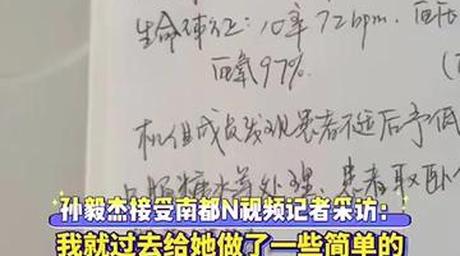 生命体征:心率72bpm.血压
血氧97%.
机组成员发现患者不适后予低
口服糖水等处理,患者取卧
孙毅杰接受南都N视频记者采访:
我就过去给她做了一些简单的